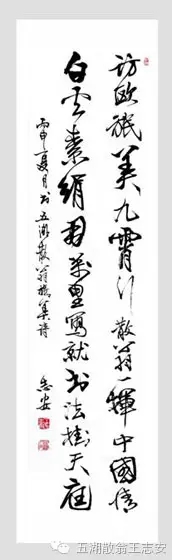 访欧旅美九霄行散翁一挥中国情
白云素绢用万里写就书法挂天庭
丙申夏月书五湖散翁旅美诗
志安
五湖散翁王志安